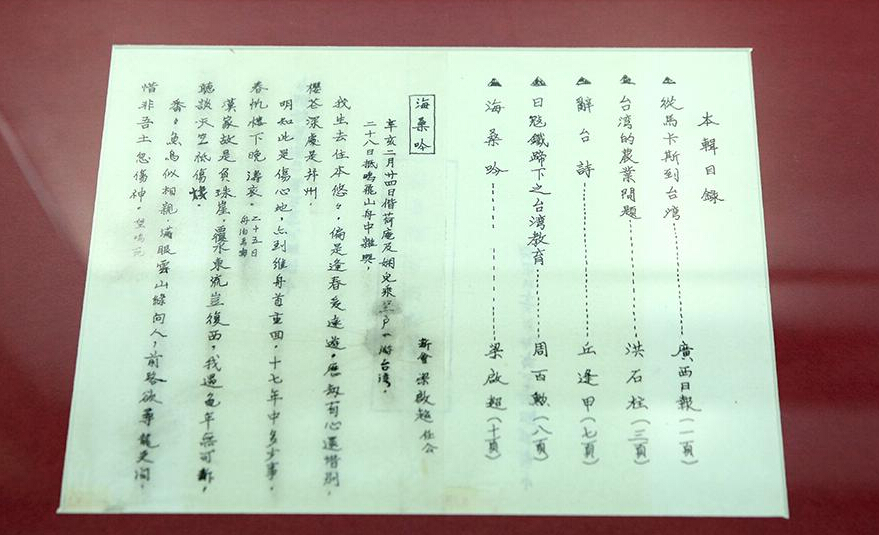 本輯目錄
從馬卡斯到台湾………廣西日報(一頁)
台湾的農業問題………洪石柱(三頁)
辭台詩………丘逢甲(七頁)
日冦鐵蹄下之台湾教育………周百勳(八頁)
海桑吟………梁啟超(十頁)
海桑吟
新會 梁啟超 任公
辛亥二月廿四日偕荷庵及嫻兒乘笠戶丸游台湾,
二十八日抵鳴飛山舟中雜興,
我生去住本悠々,偏是逢春爱遠遊,歷劫有心還惜別,
櫻花深處是并州。
明知此是傷心地,亦到維舟首重回,十七年中多少事,
春帆樓下晚濤哀。二十五日舟泊馬關
漢家故是負珠崖,覆水東流豈復西,我遇龜年無可訴,
聽談天宝祇傷悽。
番々魚鳥似相親,满眼雲山綠向人,前路欲尋龍
惜非吾土忽傷神。